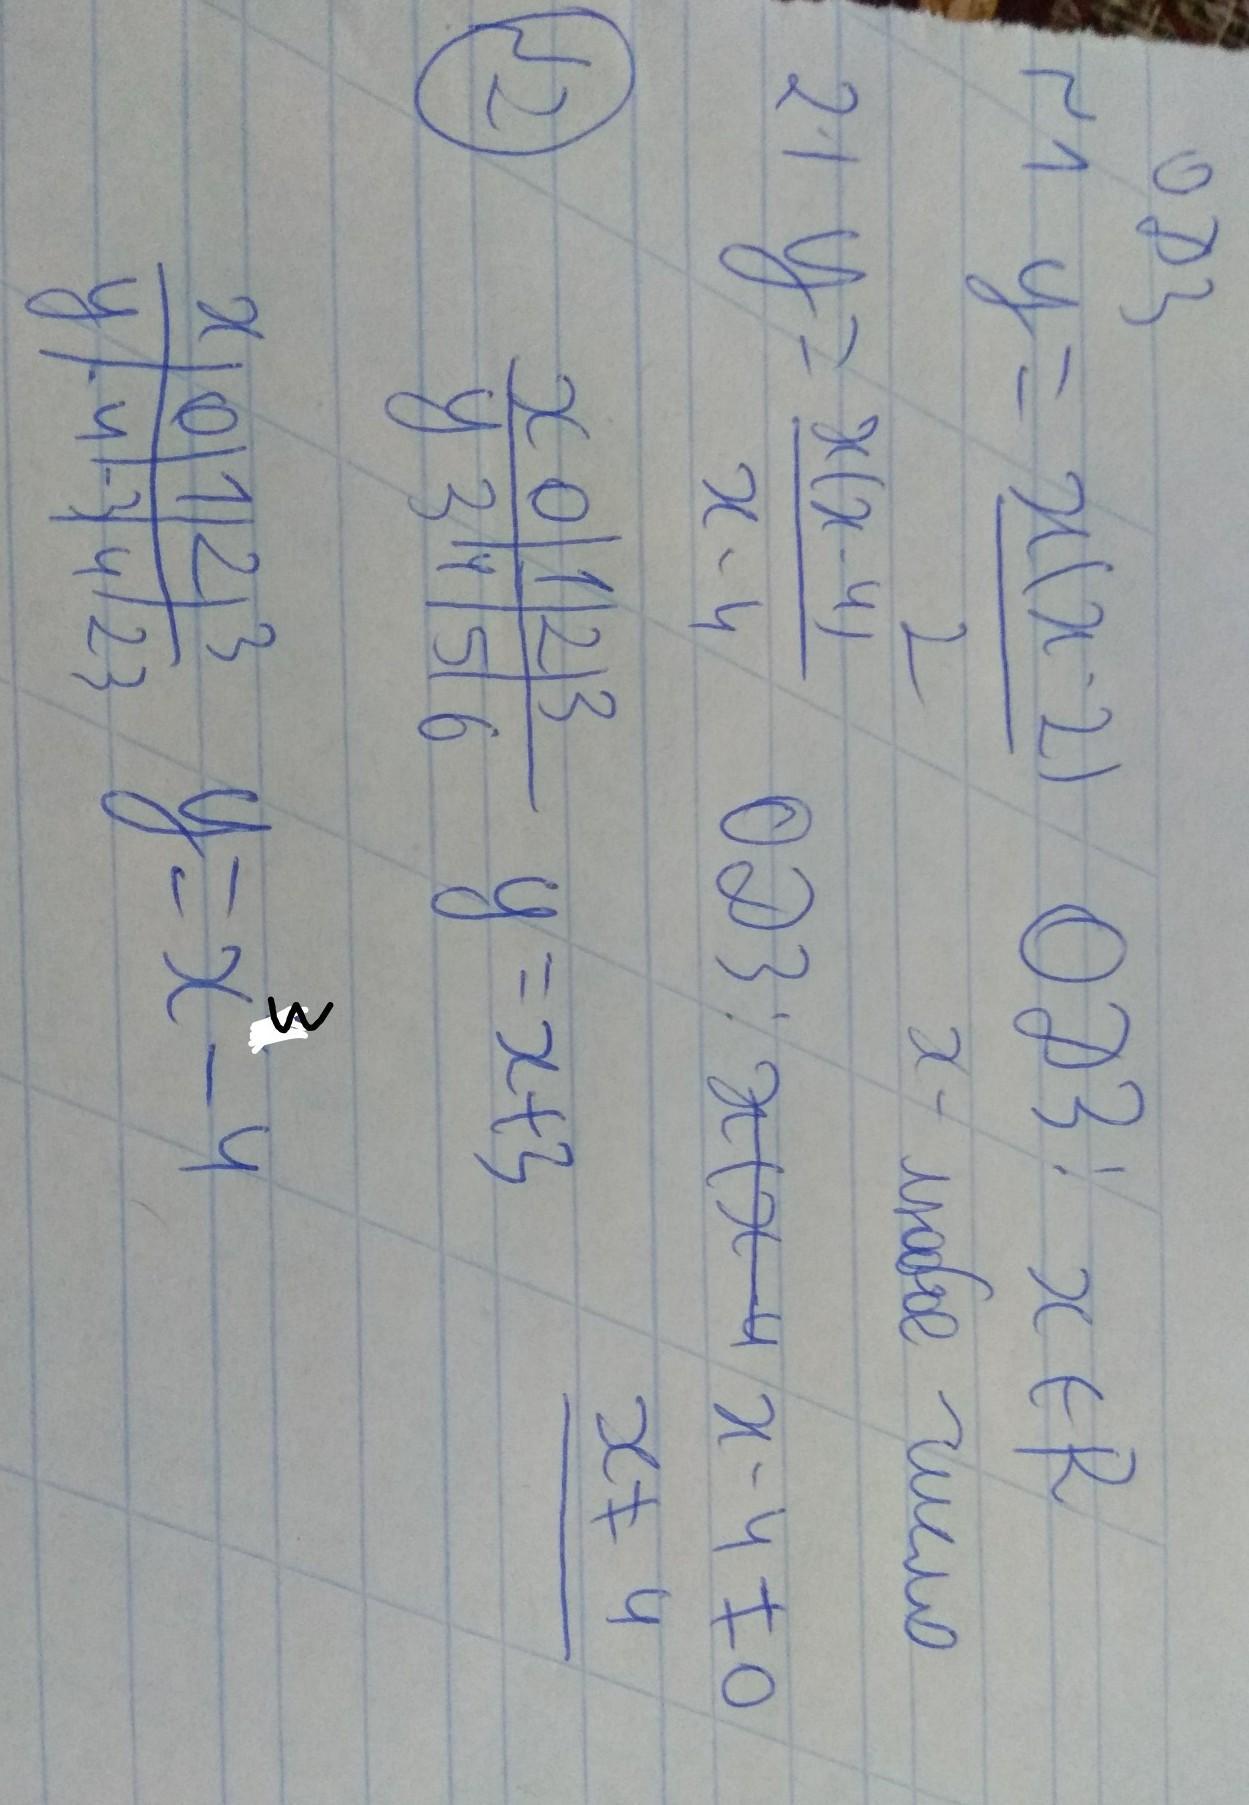 ОДЗ
№1 y = x(x-2) ОДЗ: x ∈ R
2 x - любое число
2) y = x(x-4) ОДЗ: x(x-4 x-4≠0
x-4 x≠4
№2
x 0|1|2|3
y 3|4|5|6 y = x+3
x|0|1|2|3
y|-4|-3|4|23 y = x - 4
w